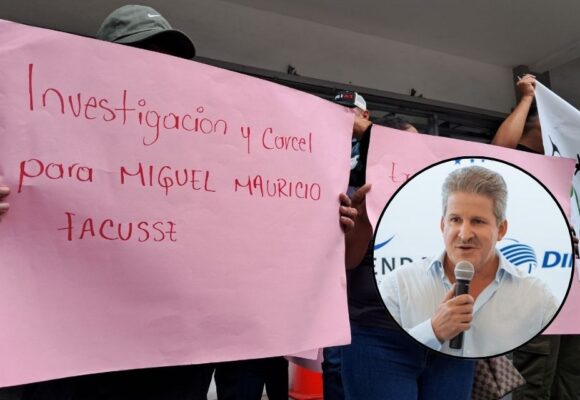 Investigación y Carcel
para MIGUEL MAURICIO
FACUSSE
END
DI